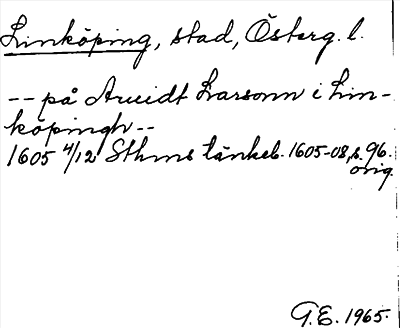 Linköping, stad, Österg. l.
-- på Arvidt Larsonn i Lin-
köpingh --
1605 4/12 Sthms tänkeb. 1605-08, s. 96.
orig.
G.E. 1965.